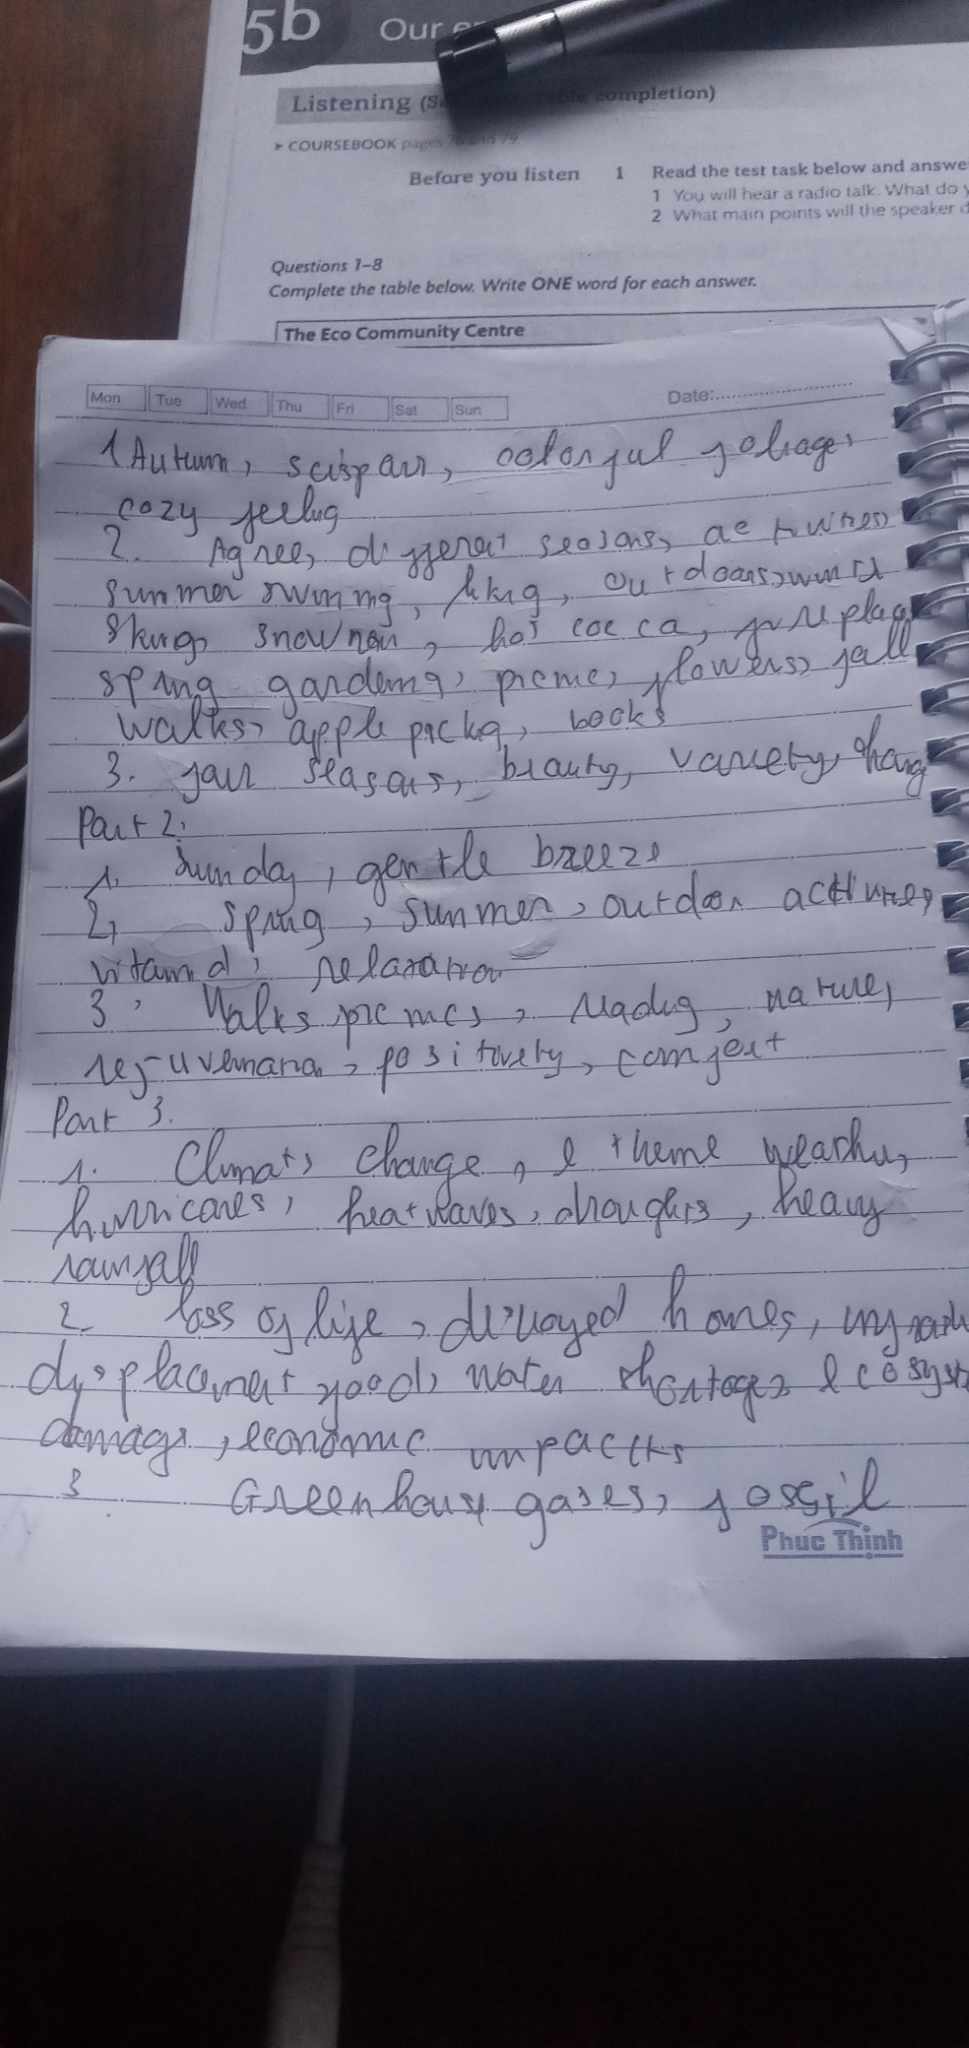 5b Our
Listening (S completion)
▸ COURSEBOOK pages 79.
Before you listen 1 Read the test task below and answe
1 You will hear a radio talk. What do y
2 What main points will the speaker d
Questions 1–8
Complete the table below. Write ONE word for each answer.
The Eco Community Centre
Mon Tue Wed Thu Fri Sat Sun Date:
1 Autumn, colorful foliage,
cozy feeling
2. Agree, different seasons, activities
summer swiming, hikig, outdoors,
skiing, snowman, hot cocca, fireplac
spring gardening, picnic, flowers, fall
walks, apple pickig, books
3. four seasons, beauty, variety, chang
Part 2.
1. Sunday, gentle breeze
2, spring, summer, outdoor activities,
vitamin d, relaxation
3, Walks picnics, readig, nature,
positively, comfort
Part 3.
1. Climate change, weather,
hurricanes, heatwaves, droughts, heavy
rainfall
2. loss of life, homes,
displacement food, water shortages ecosyst
damage, economic impactts
3 Greenhouse gases, fossil
Phuc Thinh